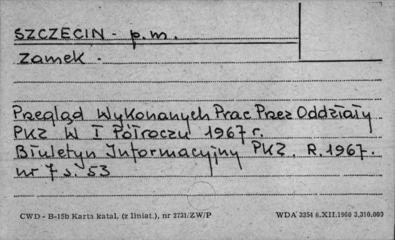 SZCZECIN - p.m.
Zamek.
Przegląd Wykonanych Prac Przez Oddziały
PKZ W I Półroczu 1967 r.
Biuletyn Informacyjny PKZ. R. 1967.
nr 7 s. 53
CWD - B-15b Karta katal. (z liniat.), nr 2731/ZW/P WDA 3354 6.XII.1960 3,310,000